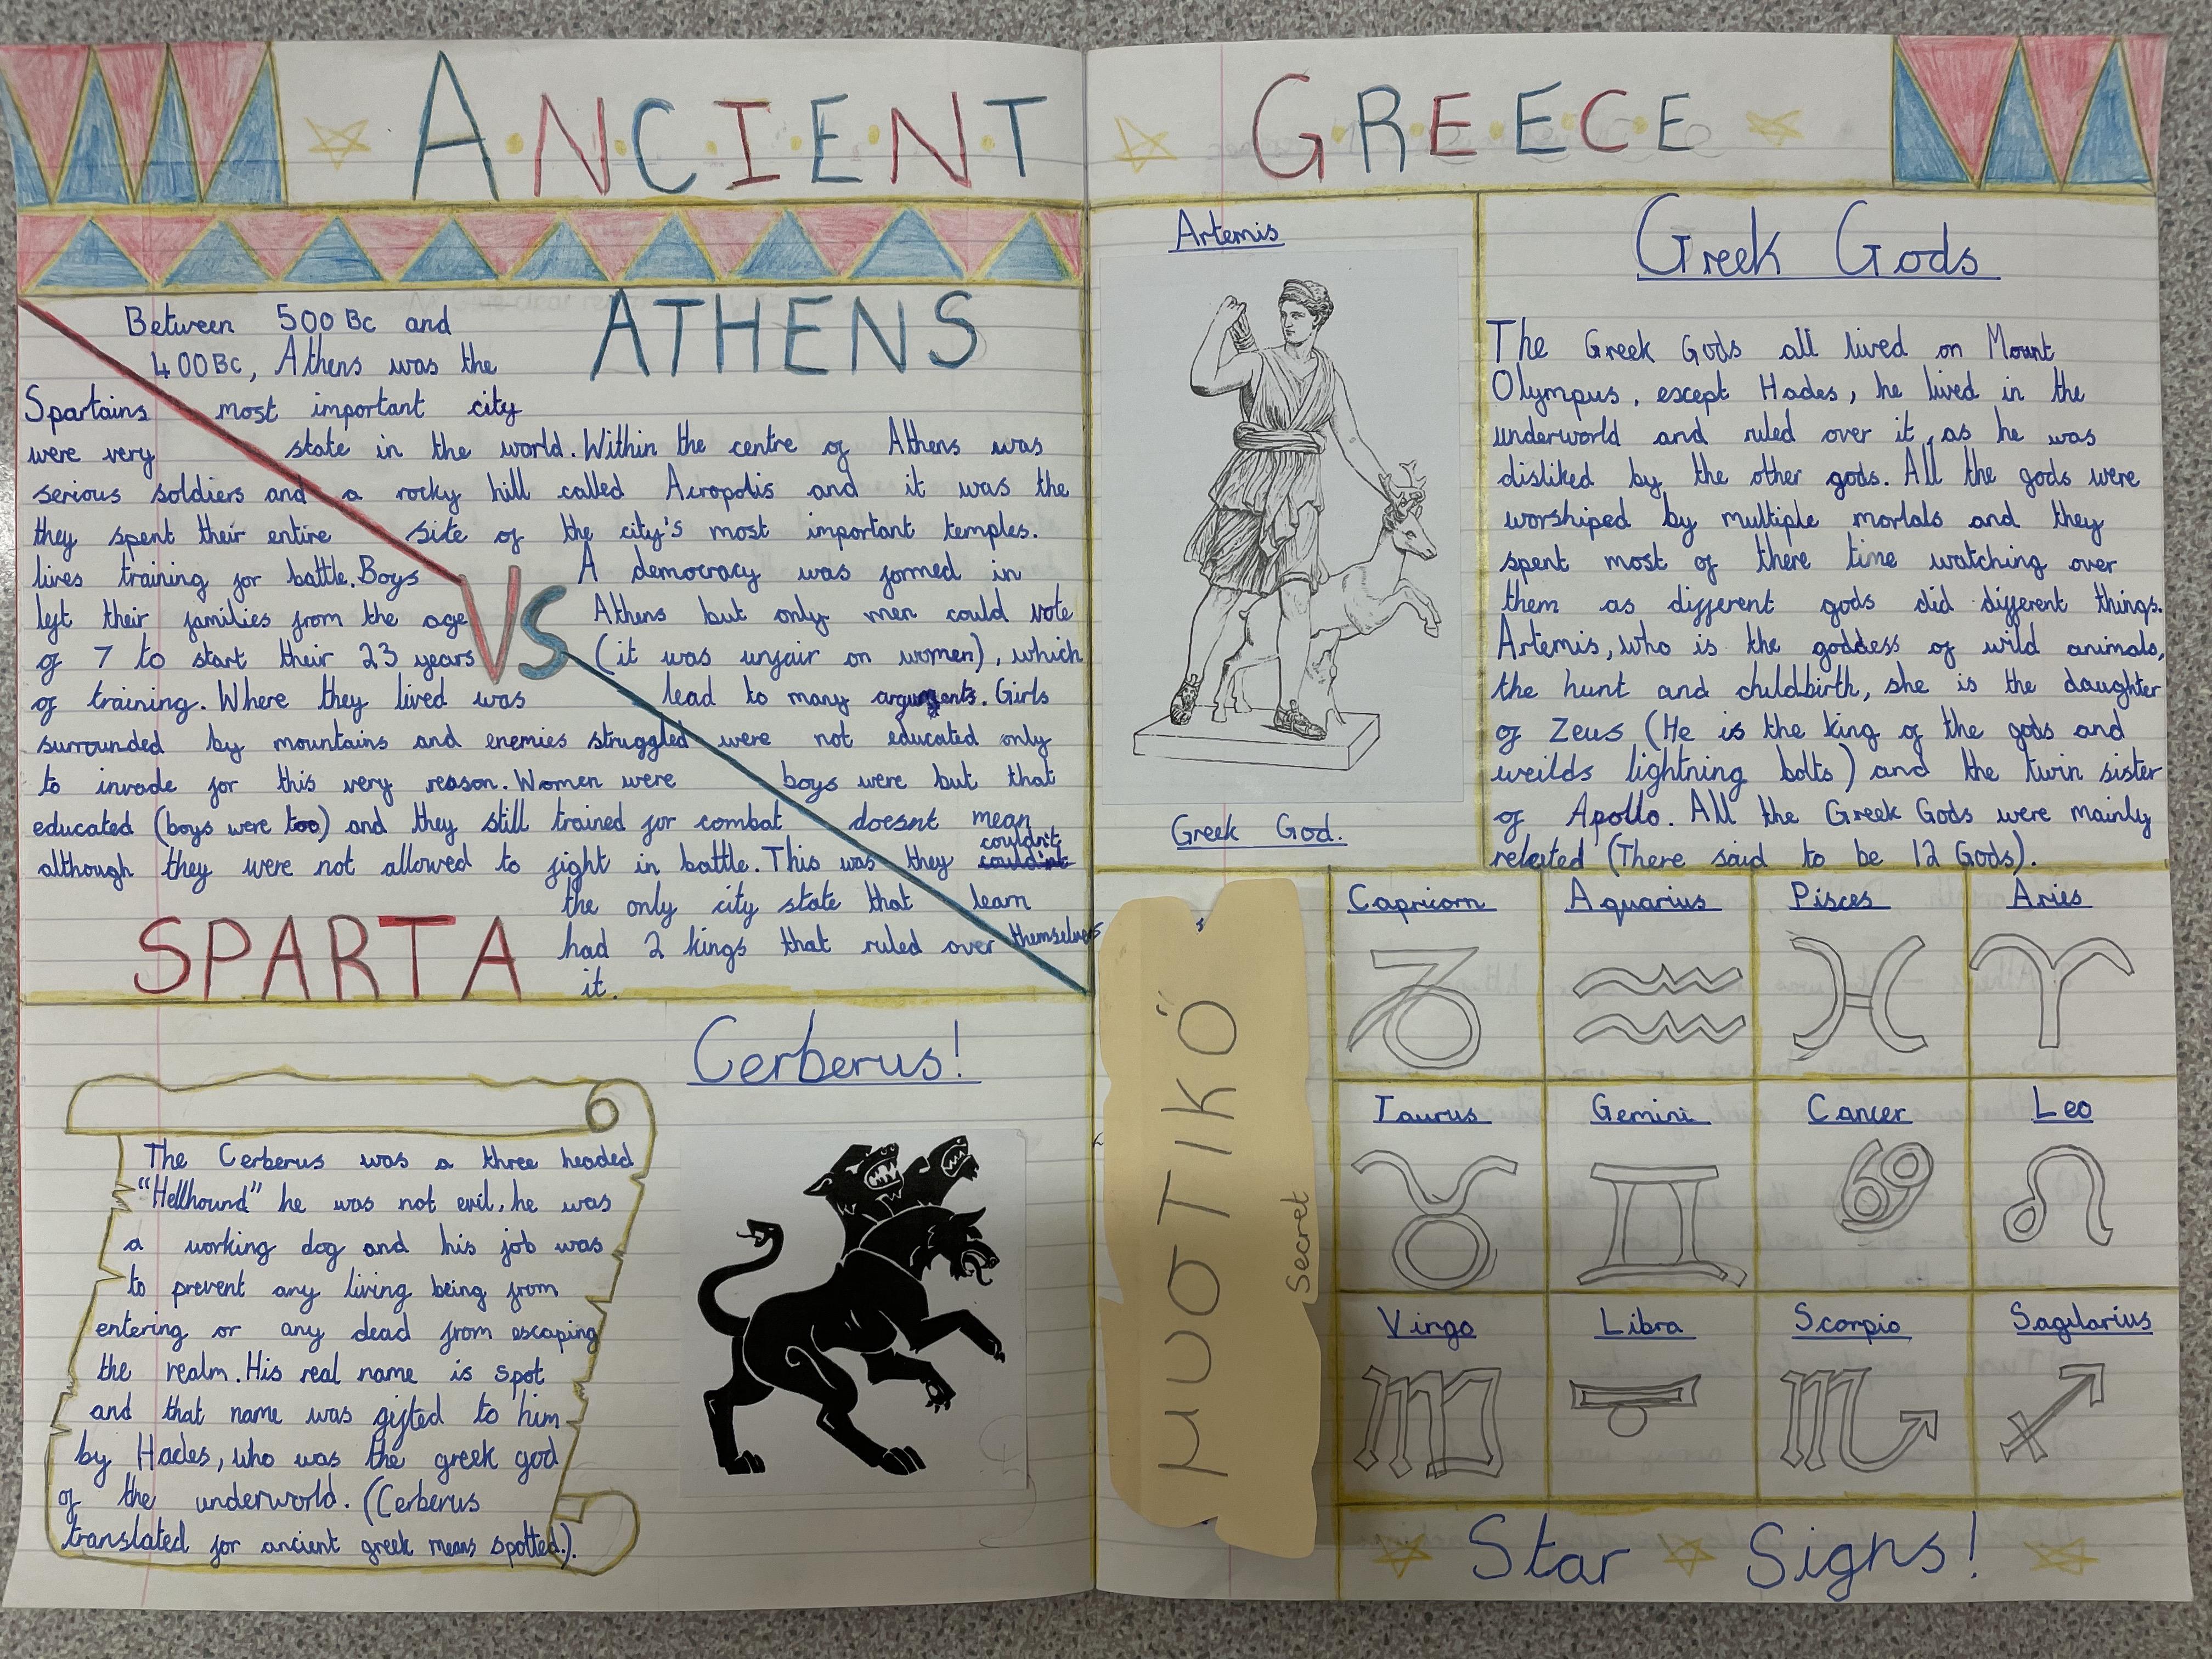 ANCIENT GREECE
ATHENS
Between 500 BC and
400BC, Athens was the
most important city
state in the world. Within the centre of Athens was
a rocky hill called Acropolis and it was the
site of the city's most important temples.
A democracy was formed in
Athens but only men could vote
(it was unfair on women), which
lead to many arguments. Girls
were not educated only
boys were but that
doesnt mean
they couldn't
learn
themselves
VS
Spartains
were very
serious soldiers and
they spent their entire
lives training for battle. Boys
left their families from the age
of 7 to start their 23 years
of training. Where they lived was
surrounded by mountains and enemies struggled
to invade for this very reason. Women were
educated (boys were too) and they still trained for combat
although they were not allowed to fight in battle. This was
the only city state that
had 2 kings that ruled over
it.
SPARTA
Cerberus!
The Cerberus was a three headed
"Hellhound" he was not evil, he was
a working dog and his job was
to prevent any living being from
entering or any dead from escaping
the realm. His real name is spot
and that name was gifted to him
by Hades, who was the greek god
of the underworld. (Cerberus
translated for ancient greek means spotted.).
Artemis
Greek God.
Greek Gods
The Greek Gods all lived on Mount
Olympus, except Hades, he lived in the
underworld and ruled over it, as he was
disliked by the other gods. All the gods were
worshiped by multiple mortals and they
spent most of there time watching over
them as different gods did different things.
Artemis, who is the goddess of wild animals,
the hunt and childbirth, she is the daughter
of Zeus (He is the king of the gods and
weilds lightning bolts) and the twin sister
of Apollo. All the Greek Gods were mainly
releited (There said to be 12 Gods).
μυστικό
Secret
Capricorn Aquarius Pisces Aries
Taurus Gemini Cancer Leo
Virgo Libra Scorpio Sagitarius
Star Signs!